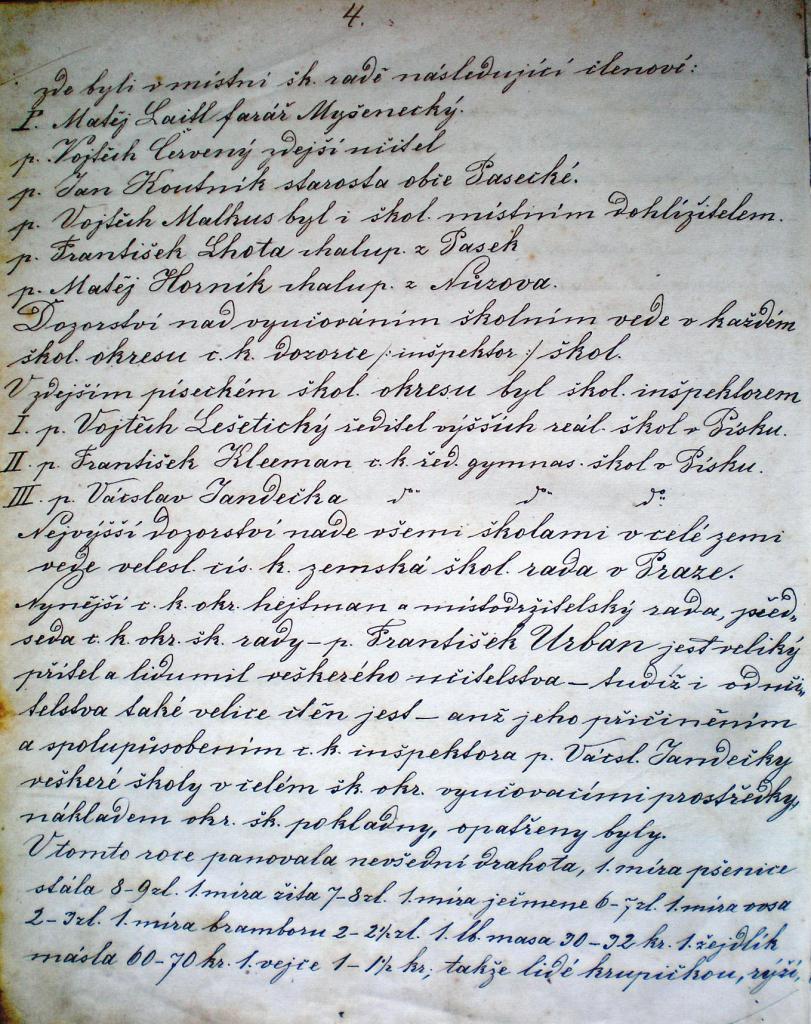 4.
zde byli v místní šk. radě následující členové:
P. Matěj Laitl farář Myšenecký.
p. Vojtěch Červený zdejší učitel
p. Jan Koutník starosta obce Pasecké.
p. Vojtěch Malkus byl i škol. místním dohlížitelem.
p. František Lhota chalup. z Pasek
p. Matěj Horník chalup. z Nůzova.
Dozorství nad vyučováním školním vede v každém
škol. okresu c. k. dozorce /: inšpektor :/ škol.
V zdejším píseckém škol. okresu byl škol. inšpektorem
I. p. Vojtěch Lešetický ředitel výšších reál. škol v Písku.
II. p. František Kleeman c. k. řed. gymnas. škol v Písku.
III. p. Vácslav Jandečka do do do
Nejvýšší dozorství nade všemi školami v celé zemi
vede velesl. cís. k. zemská škol. rada v Praze.
Nynější c. k. okr. hejtman a místodržitelský rada, před-
seda c. k. okr. šk. rady – p. František Urban jest veliký
přítel a lidumil veškerého učitelstva – tudíž i od uči-
telstva také velice ctěn jest – anž jeho přičiněním
a spolupůsobením c. k. inšpektora p. Vácsl. Jandečky
veškeré školy v celém šk. okr. vyučovacími prostředky,
nákladem okr. šk. pokladny, opatřeny byly.
V tomto roce panovala nevšední drahota, 1. míra pšenice
stála 8–9zl. 1. míra žita 7–8zl. 1. míra ječmene 6–7zl. 1. míra ovsa
2–3zl. 1. míra bramboru 2–2½zl. 1. lb. masa 30–32 kr. 1. žejdlík
másla 60–70 kr. 1. vejce 1–1½ kr; takže lidé krupičkou, rýží,